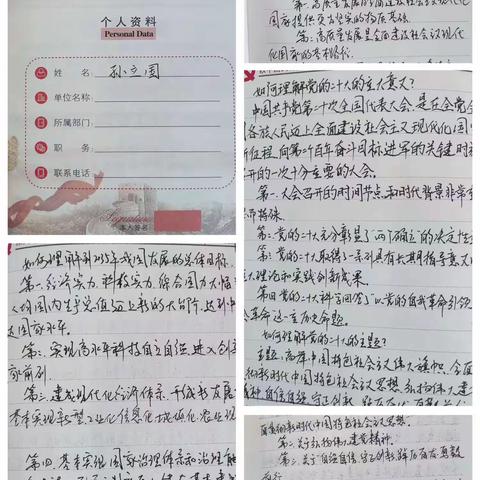 个人资料
Personal Data
姓 名：孙立国
单位名称：
所属部门：
职 务：
联系电话：
Signature
本人签名
国家提供更为坚实的物质基础。
第二，高质量发展是全面建设社会主义现代
化国家的首要任务。
如何理解党的二十大的主大意义？
中国共产党第二十次全国代表大会，是在全党全
国各族人民迈上全面建设社会主义现代化国
新征程，向第二个百年奋斗目标进军的关键时
召开的一次十分重要的大会。
第一，大会召开的时间节点和时代背景非常
特殊。
第二，党的二十大充分彰显了“两个确立”的决定性
第三，党的二十大取得了一系列具有长期指导意义
大理论和实践创新成果。
第四，党的二十大科学回答了“以党的自我革命引领
会革命”这一重大历史命题。
如何理解党的二十大的主题？
主题：高举中国特色社会主义伟大旗帜，全面
彻新时代中国特色社会主义思想，弘扬伟大建
精神，自信自强、守正创新
如何理解到2035年我国发展的总体目标。
第一，经济实力、科技实力、综合国力大幅
人均国内生产总值迈上新的大台阶，达到中
达国家水平。
第二，实现高水平科技自立自强，进入创
家前列。
第三，建成现代化经济体系，形成新发展
基本实现新型工业化、信息化、城镇化、农业现
第四，基本实现国家治理体系和治理能
新时代中国特色社会主义思想。
第二，关于弘扬伟大建党精神。
第三，关于自信自强、守正创新，踔厉奋发、勇毅
前行